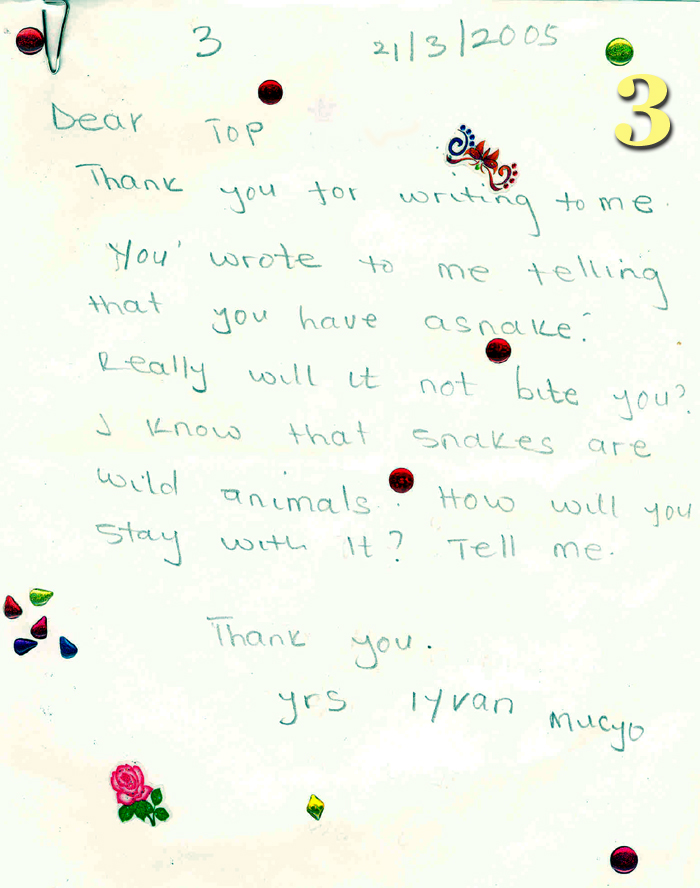 3 21/3/2005
3
Dear Top
Thank you for writing to me.
You wrote to me telling
that you have asnake.
Really will it not bite you?
I know that snakes are
wild animals. How will you
stay with It? Tell me.
Thank you.
yrs Iyvan Mucyo